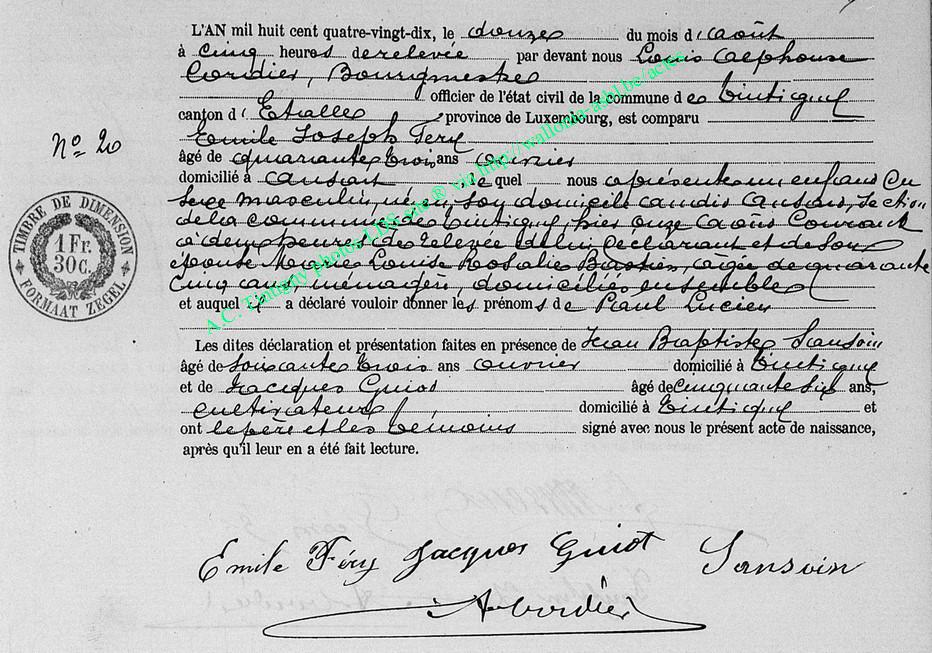 L'AN mil huit cent quatre-vingt-dix, le douze du mois d'août
à cinq heures de relevée par devant nous Louis Alphouse
Cordier, Bourgmestre
officier de l'état civil de la commune de Tintigny
canton d'Etalle, province de Luxembourg, est comparu
Emile Joseph Fery
âgé de quarante trois ans ouvrier
domicilié à Ansart, le quel nous a présenté un enfant du
sexe masculin, né en son domicile au dit Ansart, Section
de la commune de Tintigny, hier onze août courant
à deux heures de relevée de lui déclarant et de son
épouse Marie Louise Rosalie Bastin, âgée de quarante
cinq ans ménagère, domiciliés ensemble
et auquel il a déclaré vouloir donner les prénoms de Paul Lucien
Les dites déclaration et présentation faites en présence de Jean Baptiste Sansoin
âgé de soixante trois ans ouvrier domicilié à Tintigny
et de Jacques Guiot âgé de cinquante six ans,
cultivateur domicilié à Tintigny et
ont le père et les témoins signé avec nous le présent acte de naissance,
après qu'il leur en a été fait lecture.
No 20
TIMBRE DE DIMENSION
1 Fr.
30 C.
FORMAAT ZEGEL
A.C. Tintigny photos LDS, via http://wallonia-asbl.be/actes
Emile Féry Jacques Guiot Sansoin
A Cordier